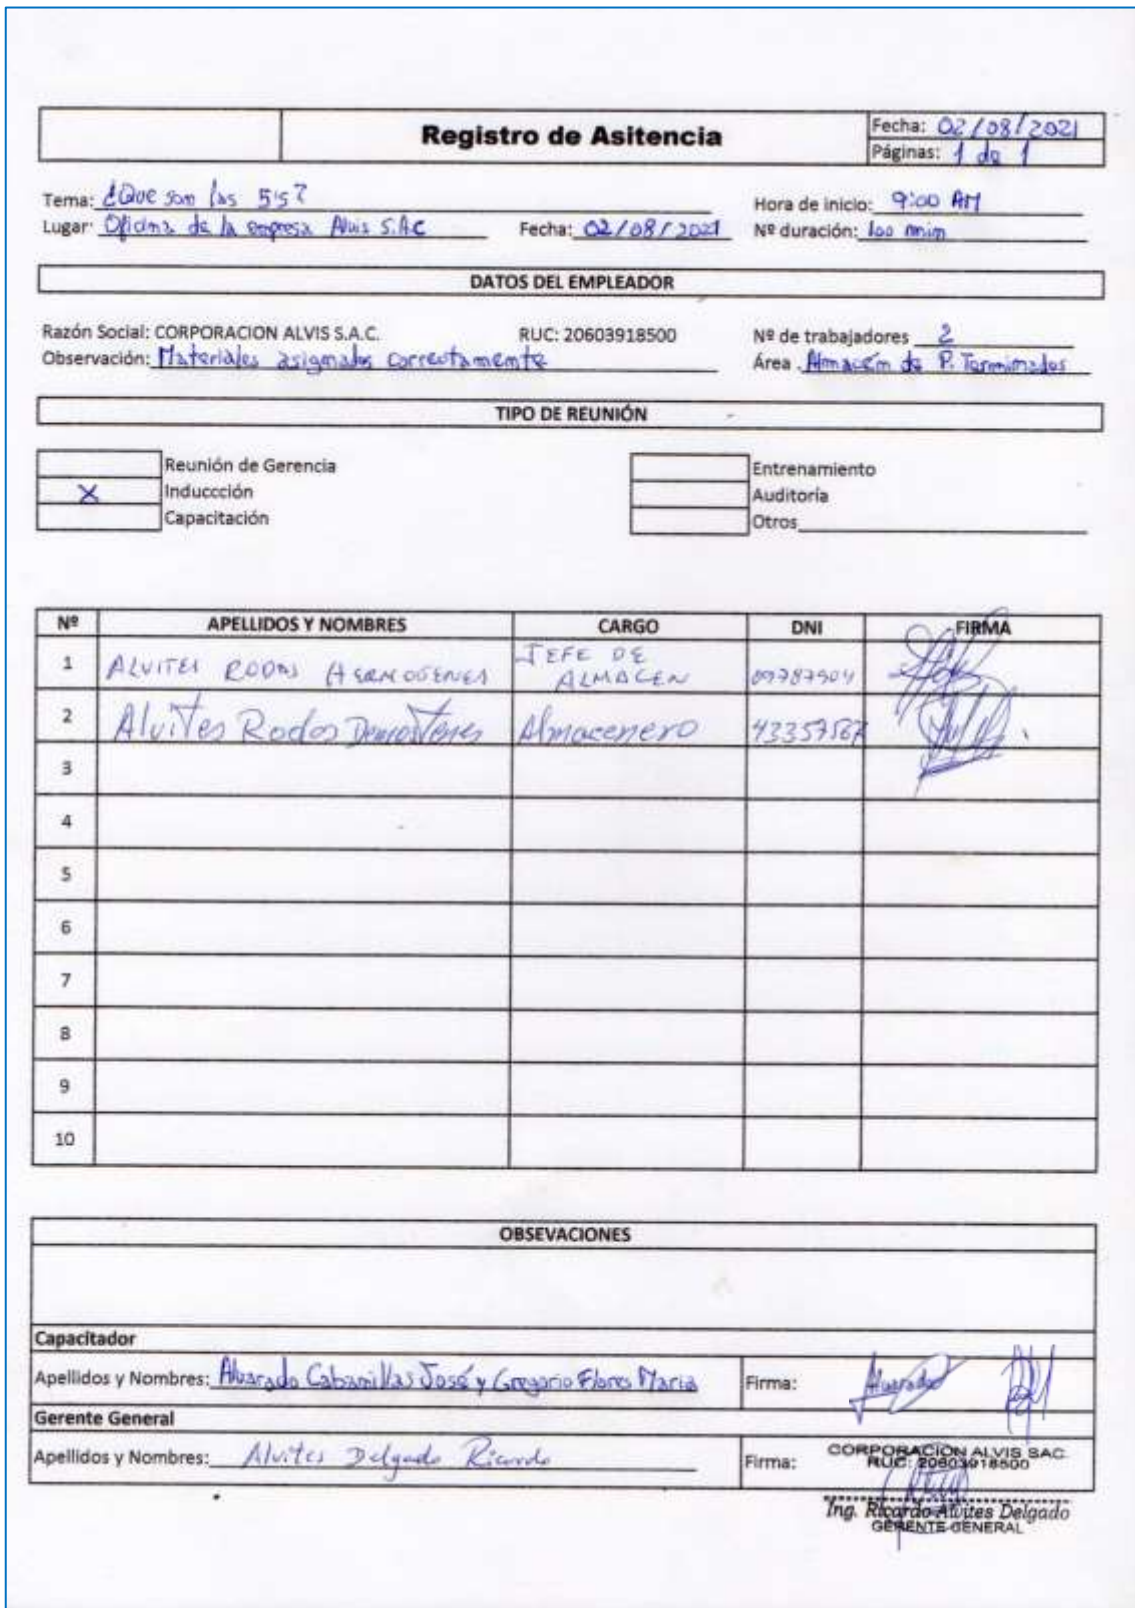 Registro de Asitencia
Fecha: 02/08/2021
Páginas: 1 de 1
Tema: ¿Que son las 5's?
Hora de inicio: 9:00 AM
Lugar: Oficina de la empresa Alvis S.A.C
Fecha: 02/08/2021
Nº duración: 100 min
DATOS DEL EMPLEADOR
Razón Social: CORPORACION ALVIS S.A.C.
RUC: 20603918500
Nº de trabajadores 2
Observación: Materiales asignados correctamente
Área. Almacén de P. Terminados
TIPO DE REUNIÓN
Reunión de Gerencia
Entrenamiento
X Induccción
Auditoría
Capacitación
Otros
Nº APELLIDOS Y NOMBRES CARGO DNI FIRMA
1 ALVITES RODAS HERMOGENES JEFE DE ALMACEN
2 Alvites Rodas Demostenes Almacenero
3
4
5
6
7
8
9
10
OBSEVACIONES
Capacitador
Apellidos y Nombres: Alvarado Cabanillas José y Gregorio Flores Maria
Firma: Alvarado
Gerente General
Apellidos y Nombres: Alvites Delgado Ricardo
Firma:
CORPORACION ALVIS SAC.
RUC: 20603918500
Ing. Ricardo Alvites Delgado
GERENTE GENERAL